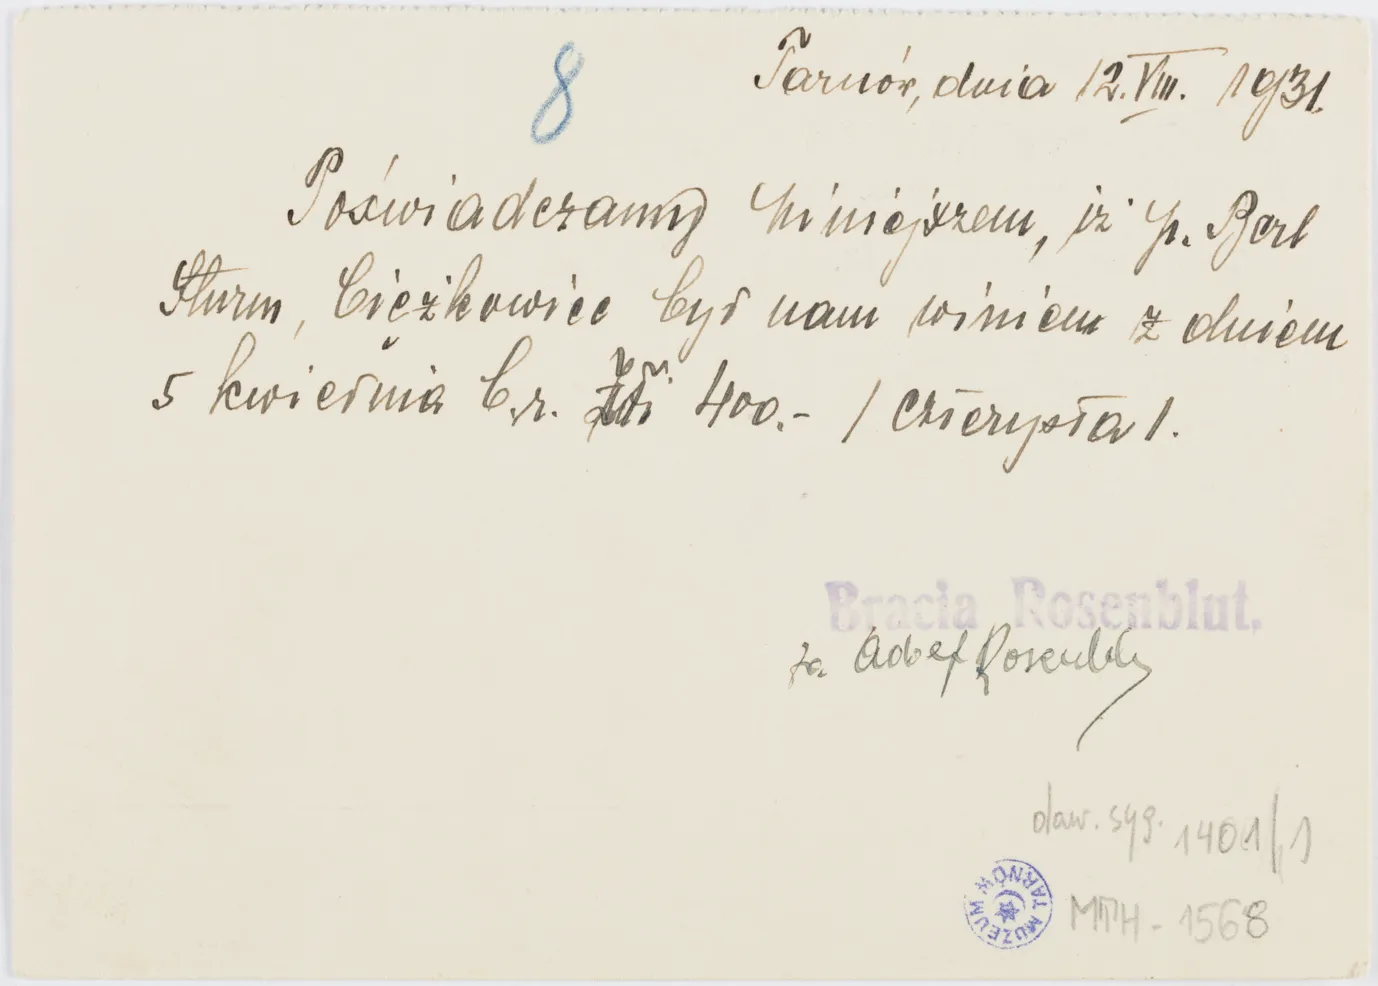 8
Tarnów, dnia 12.VIII. 1931.
Poświadczamy niniejszem, iż p. Berl
Sturm, Ciężkowice był nam winien z dniem
5 kwietnia b.r. 400.- / czterysta /.
Bracia Rosenblut.
za Adolf Rosenblut
daw. syg. 1401/1
MUZEUM TARNÓW
MTH-1568